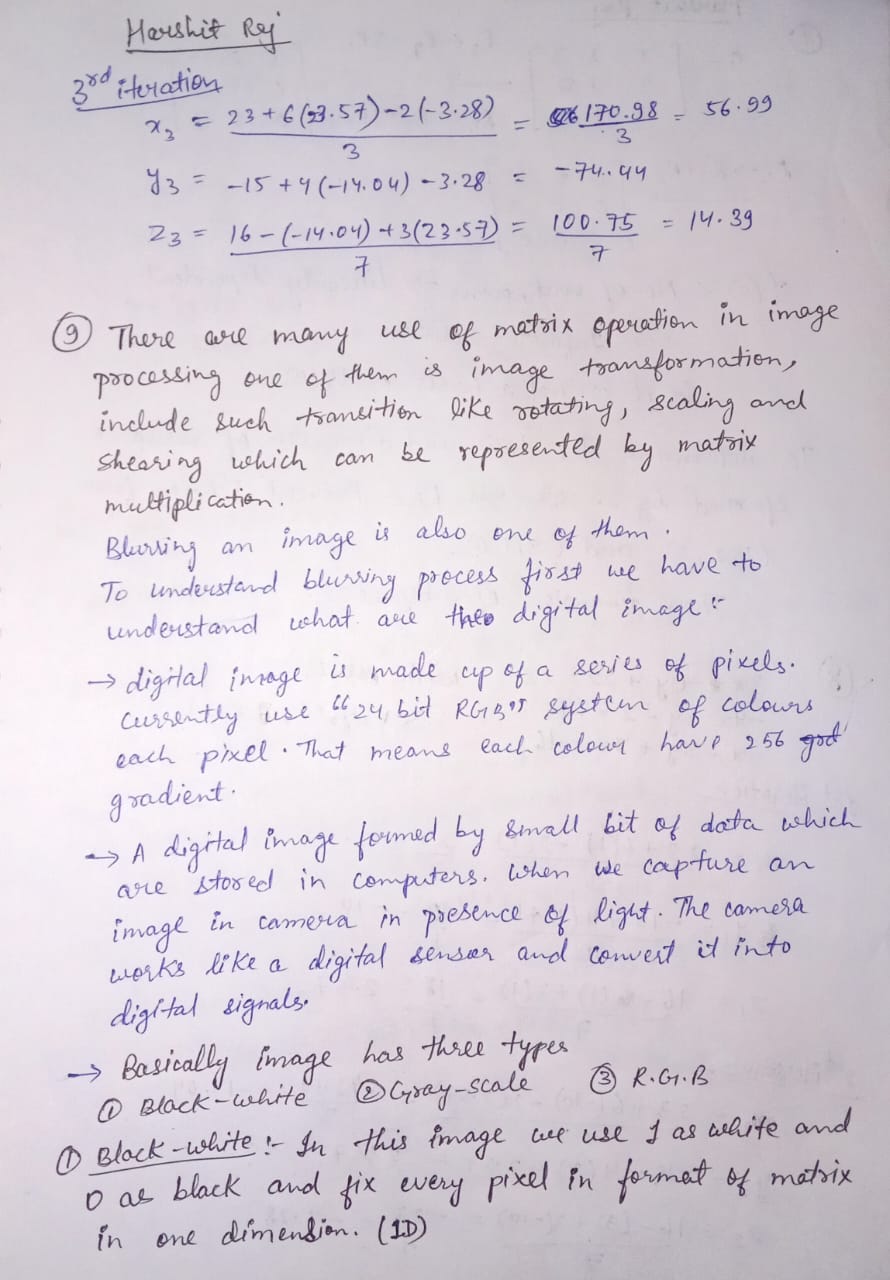 Harshit Raj
3rd iteration
x3 = 23+6(23.57)-2(-3.28) / 3 = 170.98 / 3 = 56.99
y3 = -15+4(-14.04)-3.28 = -74.44
z3 = 16-(-14.04)+3(23.57) / 7 = 100.75 / 7 = 14.39
⑨ There are many use of matrix operation in image
processing one of them is image transformation,
include such transition like rotating, scaling and
shearing which can be represented by matrix
multiplication.
Blurring an image is also one of them.
To understand blurring process first we have to
understand what are the digital image :-
→ digital image is made up of a series of pixels.
Currently use "24 bit RGB" system of colours
each pixel. That means each colour have 256
gradient.
→ A digital image formed by small bit of data which
are stored in computers. When we capture an
image in camera in presence of light. The camera
works like a digital sensor and convert it into
digital signals.
→ Basically image has three types
① Black-white ② Gray-scale ③ R.G.B
① Black-white :- In this image we use 1 as white and
0 as black and fix every pixel in format of matrix
in one dimension. (1D)